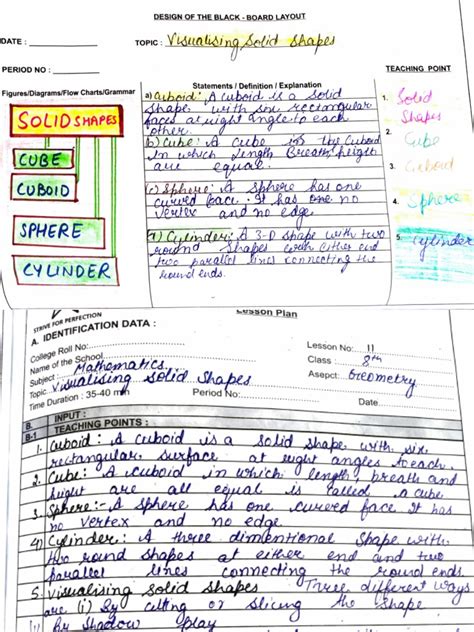 DESIGN OF THE BLACK - BOARD LAYOUT
DATE :
TOPIC : Visualising Solid Shapes
PERIOD NO :
TEACHING POINT
Figures/Diagrams/Flow Charts/Grammar
SOLID SHAPES
CUBE
CUBOID
SPHERE
CYLINDER
Statements / Definition / Explanation
a) Cuboid: A cuboid is a solid
shape with six rectangular
faces at right angle to each
other.
b) Cube: A cube is the Cuboid
In which length Breath, height
are equal.
c) Sphere: A sphere has one
curved face. It has one no
vertex and no edge.
d) Cylinder: A 3-D shape with two
round shapes with either end
two parallel lines connecting the
round ends.
1. Solid
Shapes
2. Cube
3. Cuboid
4. Sphere
5. Cylinder
Lesson Plan
STRIVE FOR PERFECTION
A. IDENTIFICATION DATA :
College Roll No:
Name of the School
Subject : Mathematics
Topic: Visualising Solid Shapes
Time Duration : 35-40 min
Period No:
Lesson No: 11
Class : 8th
Asepct: Geometry
Date:
B. INPUT :
B-1 TEACHING POINTS :
1. Cuboid: A cuboid is a solid shape with six
rectangular surface at right angles to each.
2. Cube: A cuboid in which length, breath and
height are all equal is called a cube
3. Sphere:- A sphere has one curved face It has
no vertex and no edge.
4) Cylinder: A three dimentional shape with
two round shapes at either end and two
parallel lines connecting the round ends.
5. Visualising Solid Shapes Three different ways
are (i) By cutting or slicing the shape
By Shadow play